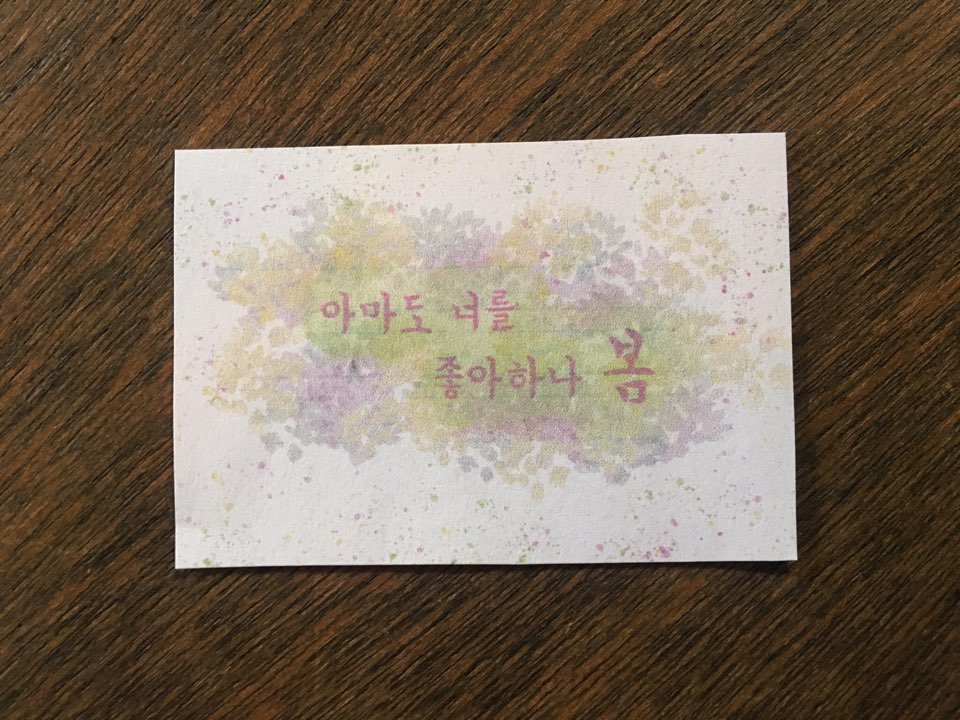 아마도 너를
좋아하나 봄